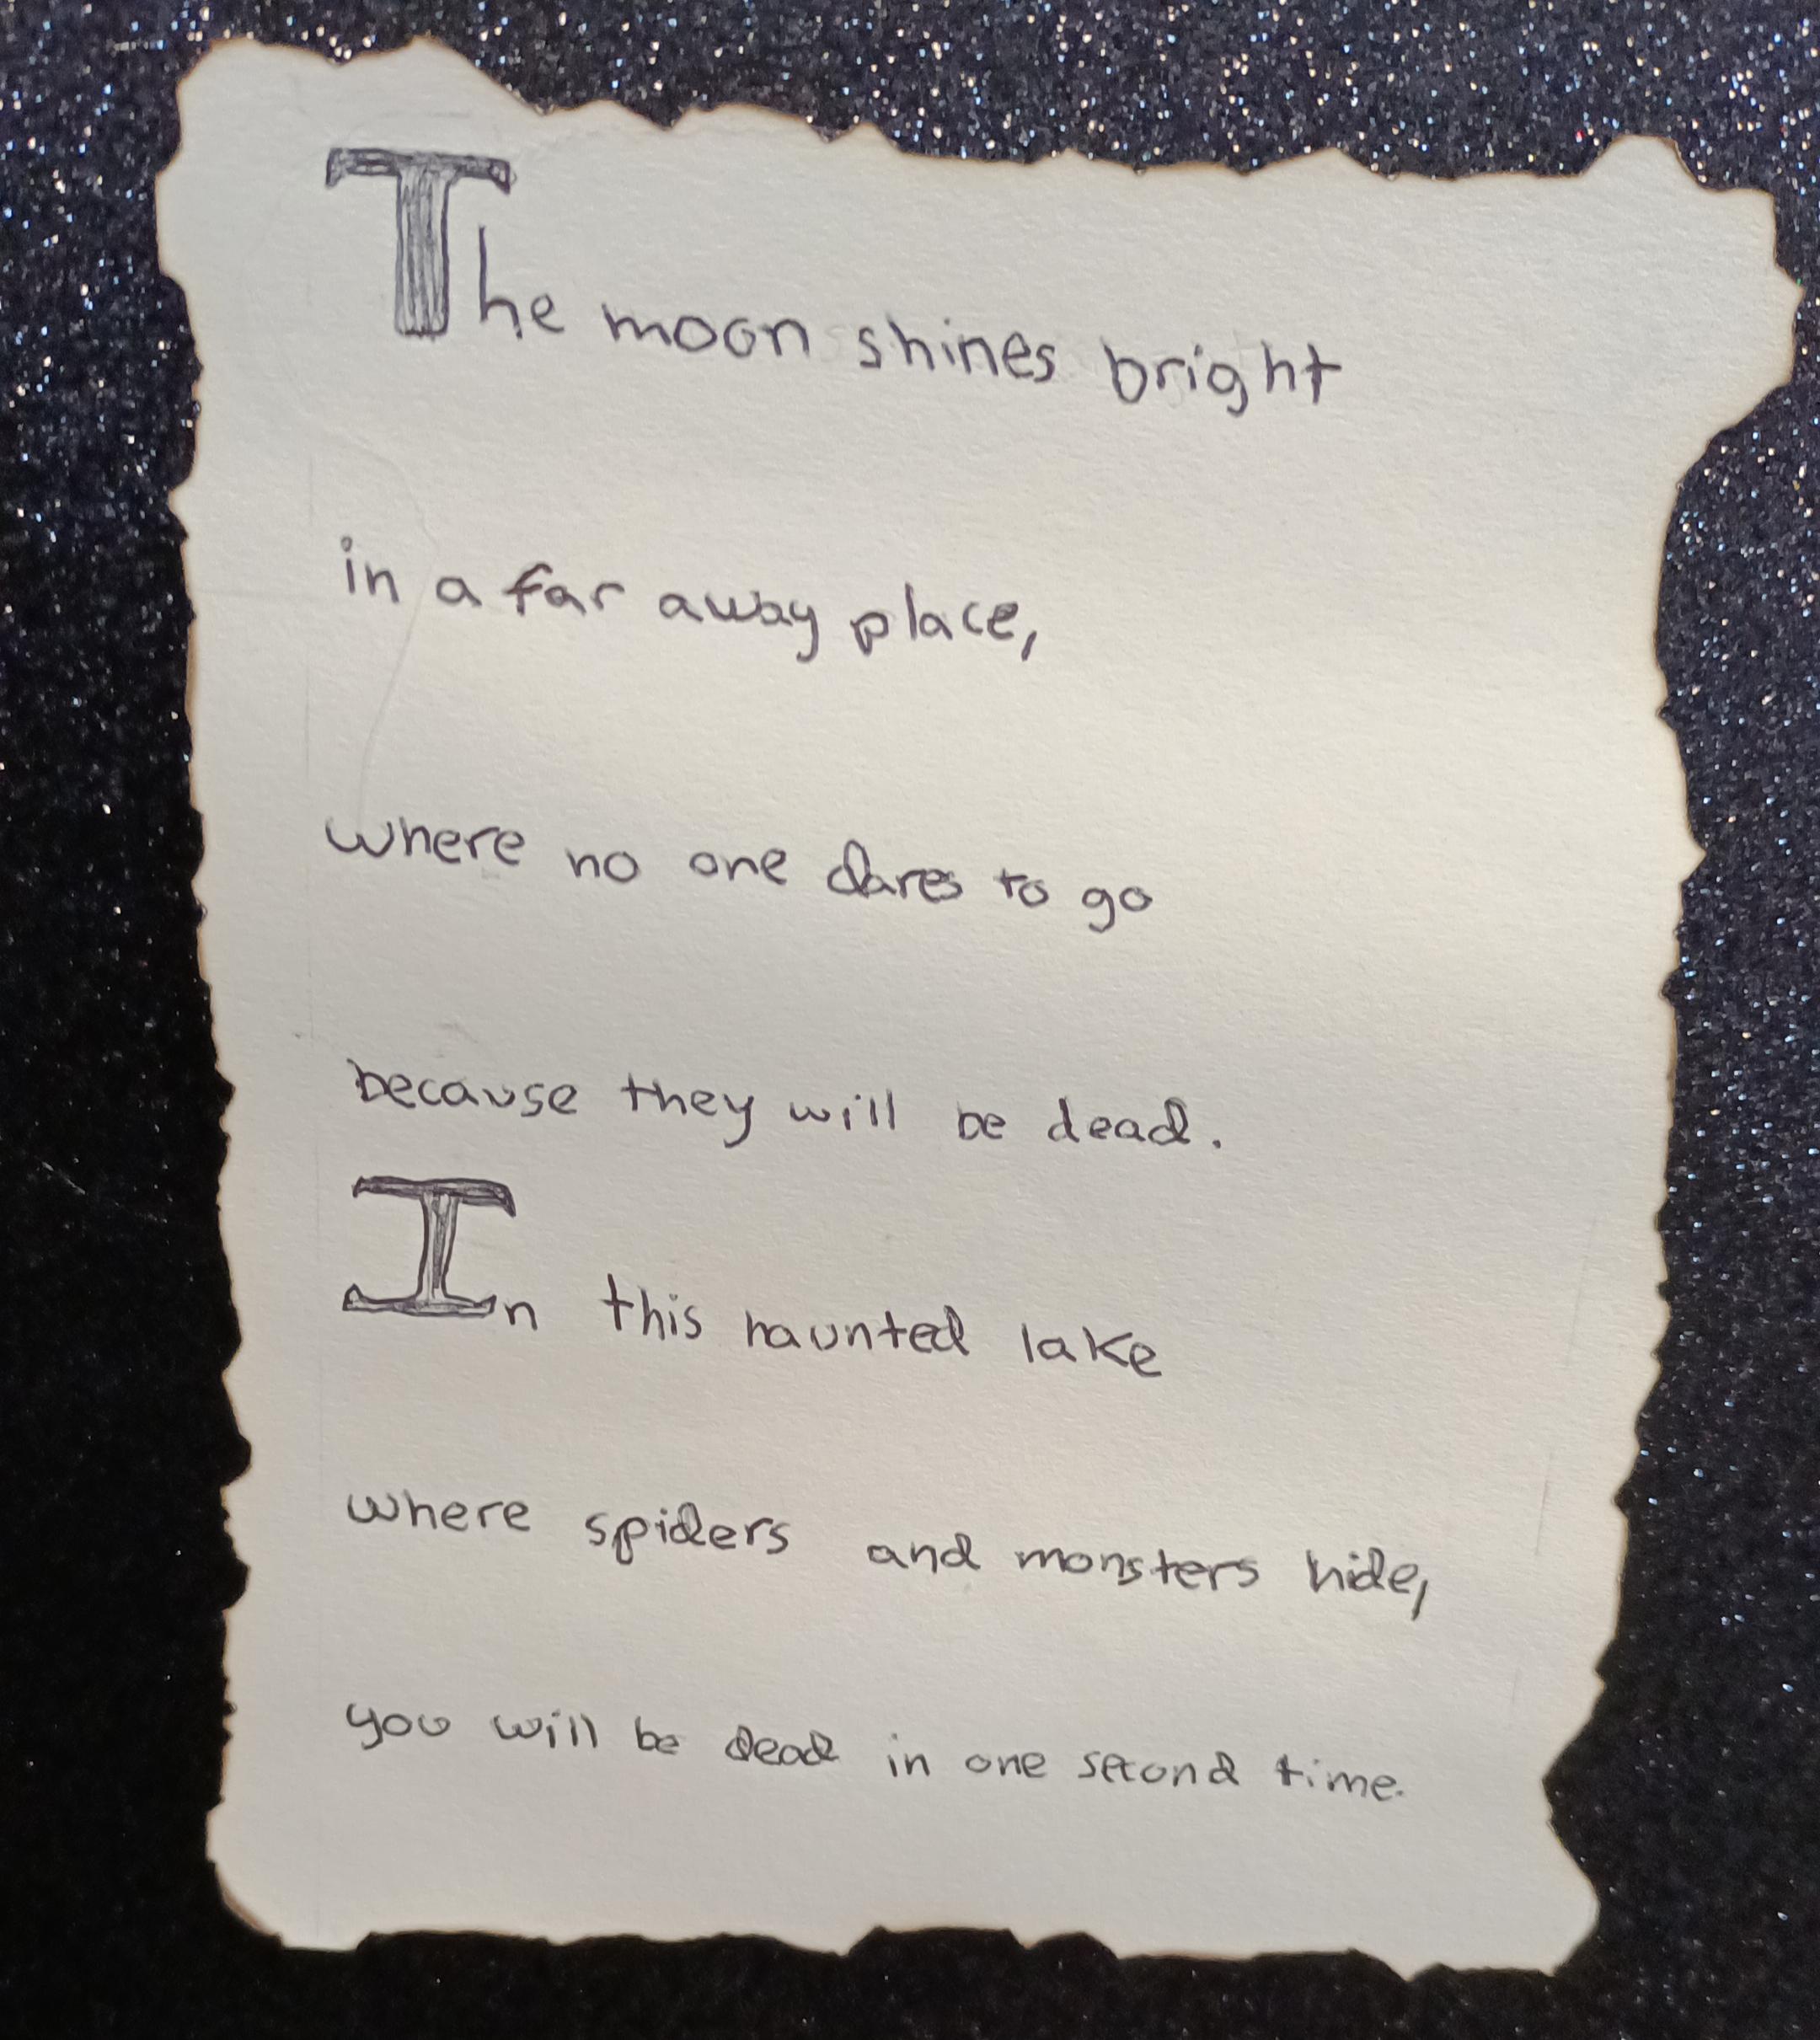 The moon shines bright
in a far away place,
where no one dares to go
because they will be dead.
In this haunted lake
where spiders and monsters hide,
you will be dead in one second time.